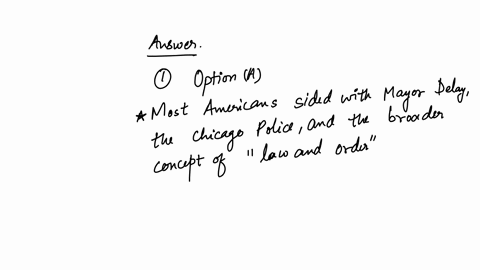 Answer.
① Option (A)
★ Most Americans sided with Mayor Delay,
the Chicago Police, and the broader
concept of "law and order"